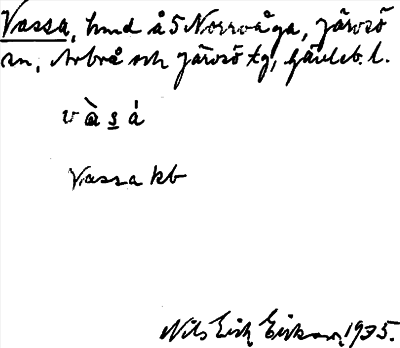 Vassa, hmd å 5 Norrvåga, Järvsö
sn, Arbrå och Järvsö tg, Gävleb. l.
v à s á
Vassa kb
Nils Erik Erikson, 1935.